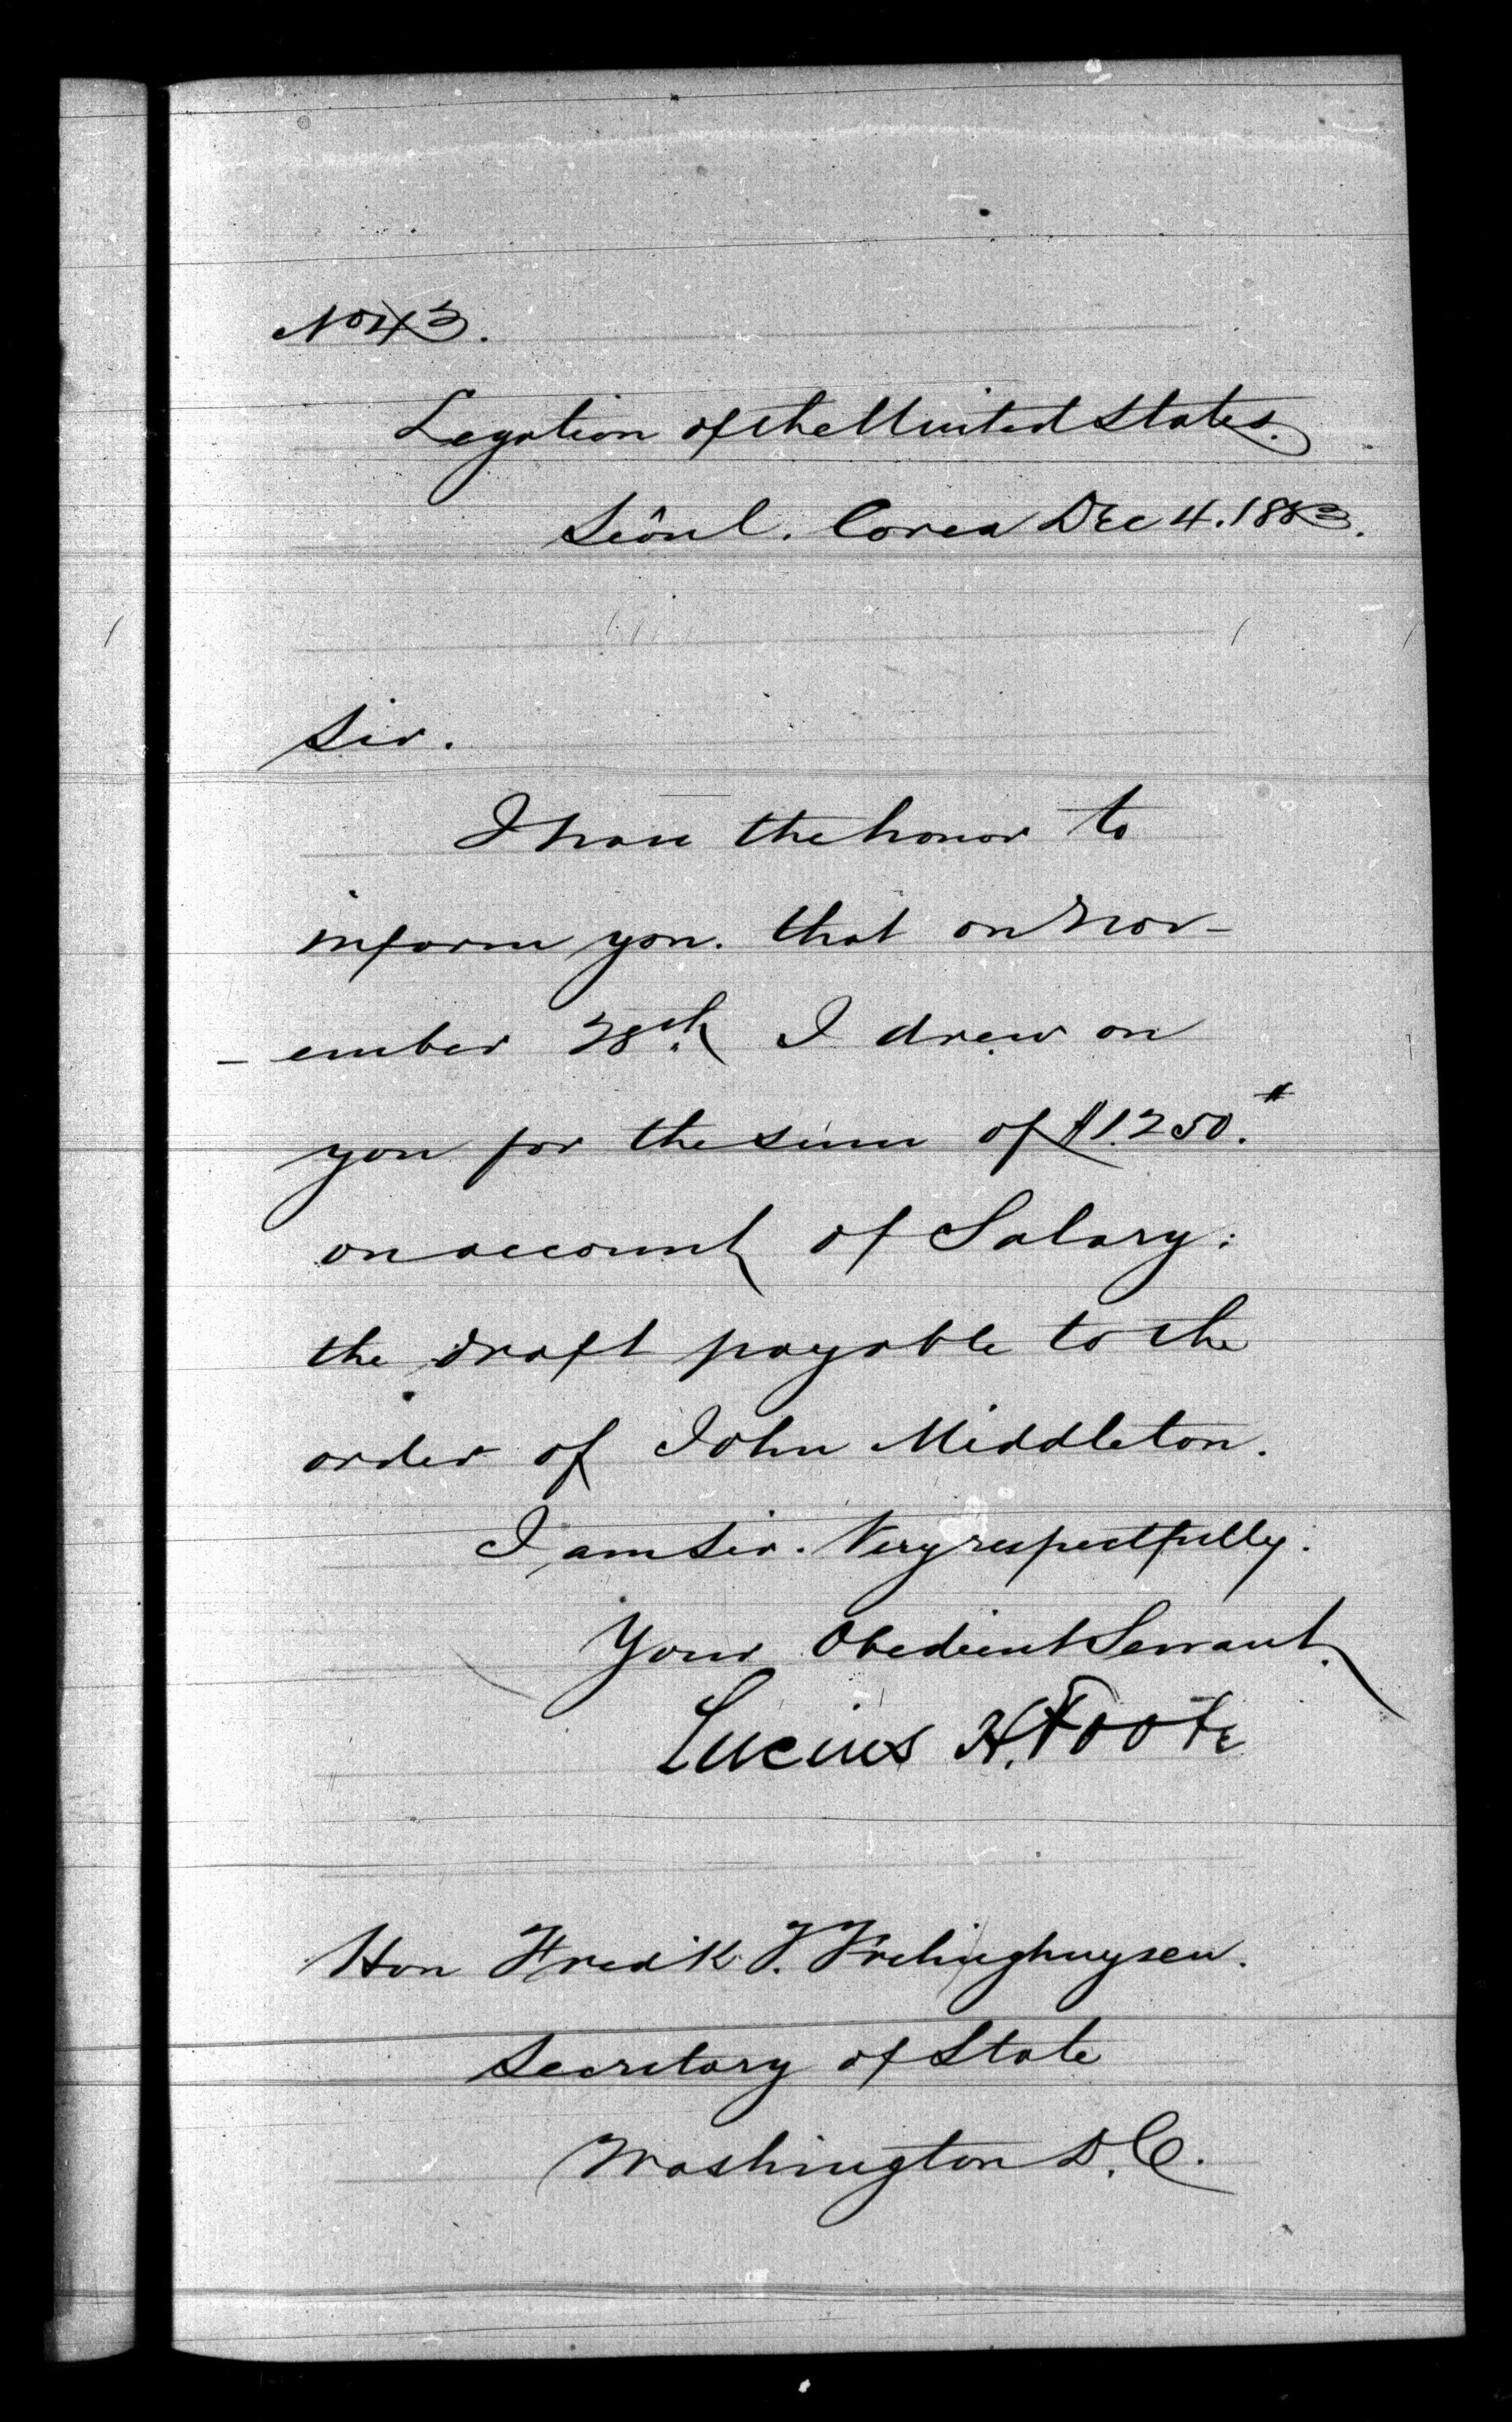 No 43.
Legation of the United States.
Seôul. Corea Dec 4. 1883.
Sir.
I have the honor to
inform you. that on Nov-
- ember 28th I drew on
you for the sum of $1.250.
on account of Salary:
the draft payable to the
order of John Middleton.
I am Sir. Very respectfully.
Your Obedient Servant.
Lucius H. Foote
Hon Fredk T. Frelinghuysen.
Secretary of State
Washington D.C.